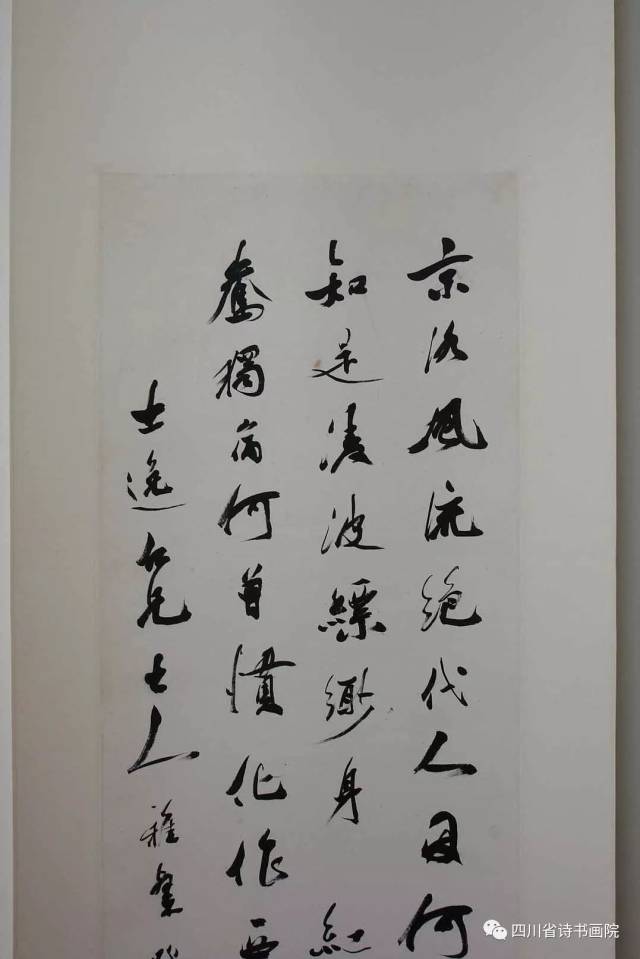 京洛風流絕代人因何
知是淩波縹緲身 紅
鴦獨宿何曾慣化作西
士逸仁兄大人 稚荃
四川省诗书画院